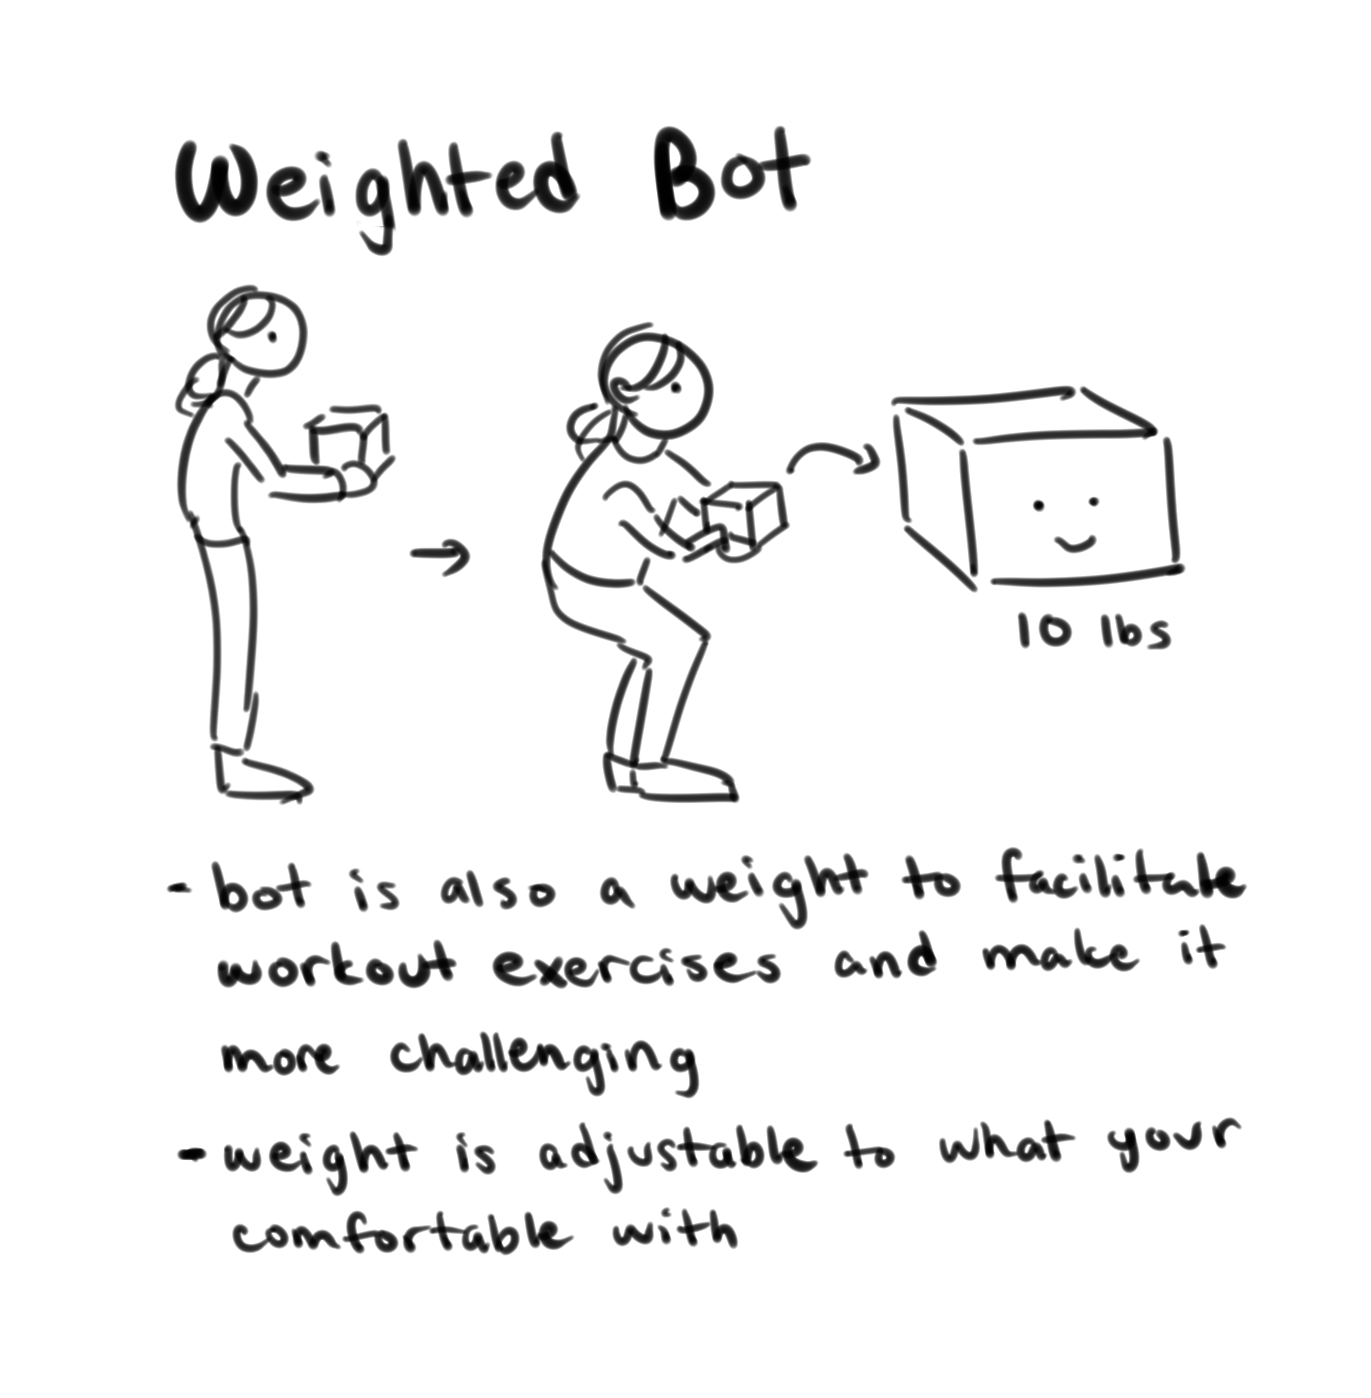 Weighted Bot
10 lbs
- bot is also a weight to facilitate
workout exercises and make it
more challenging
- weight is adjustable to what your
comfortable with